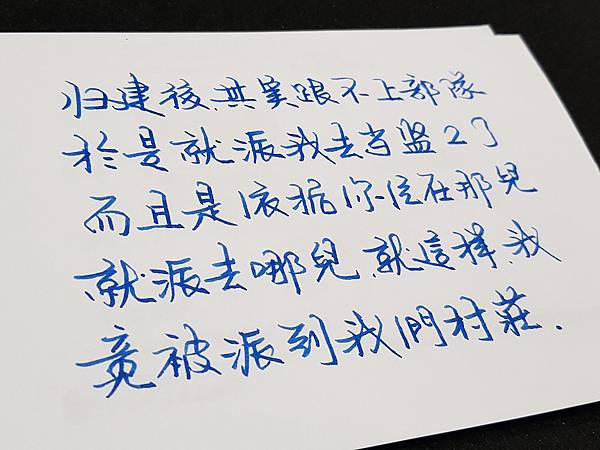 归建後,其实跟不上部隊
於是就派我去当监工了
而且是依据你住在那兒
就派去哪兒,就這樣,我
竟被派到我們村莊.